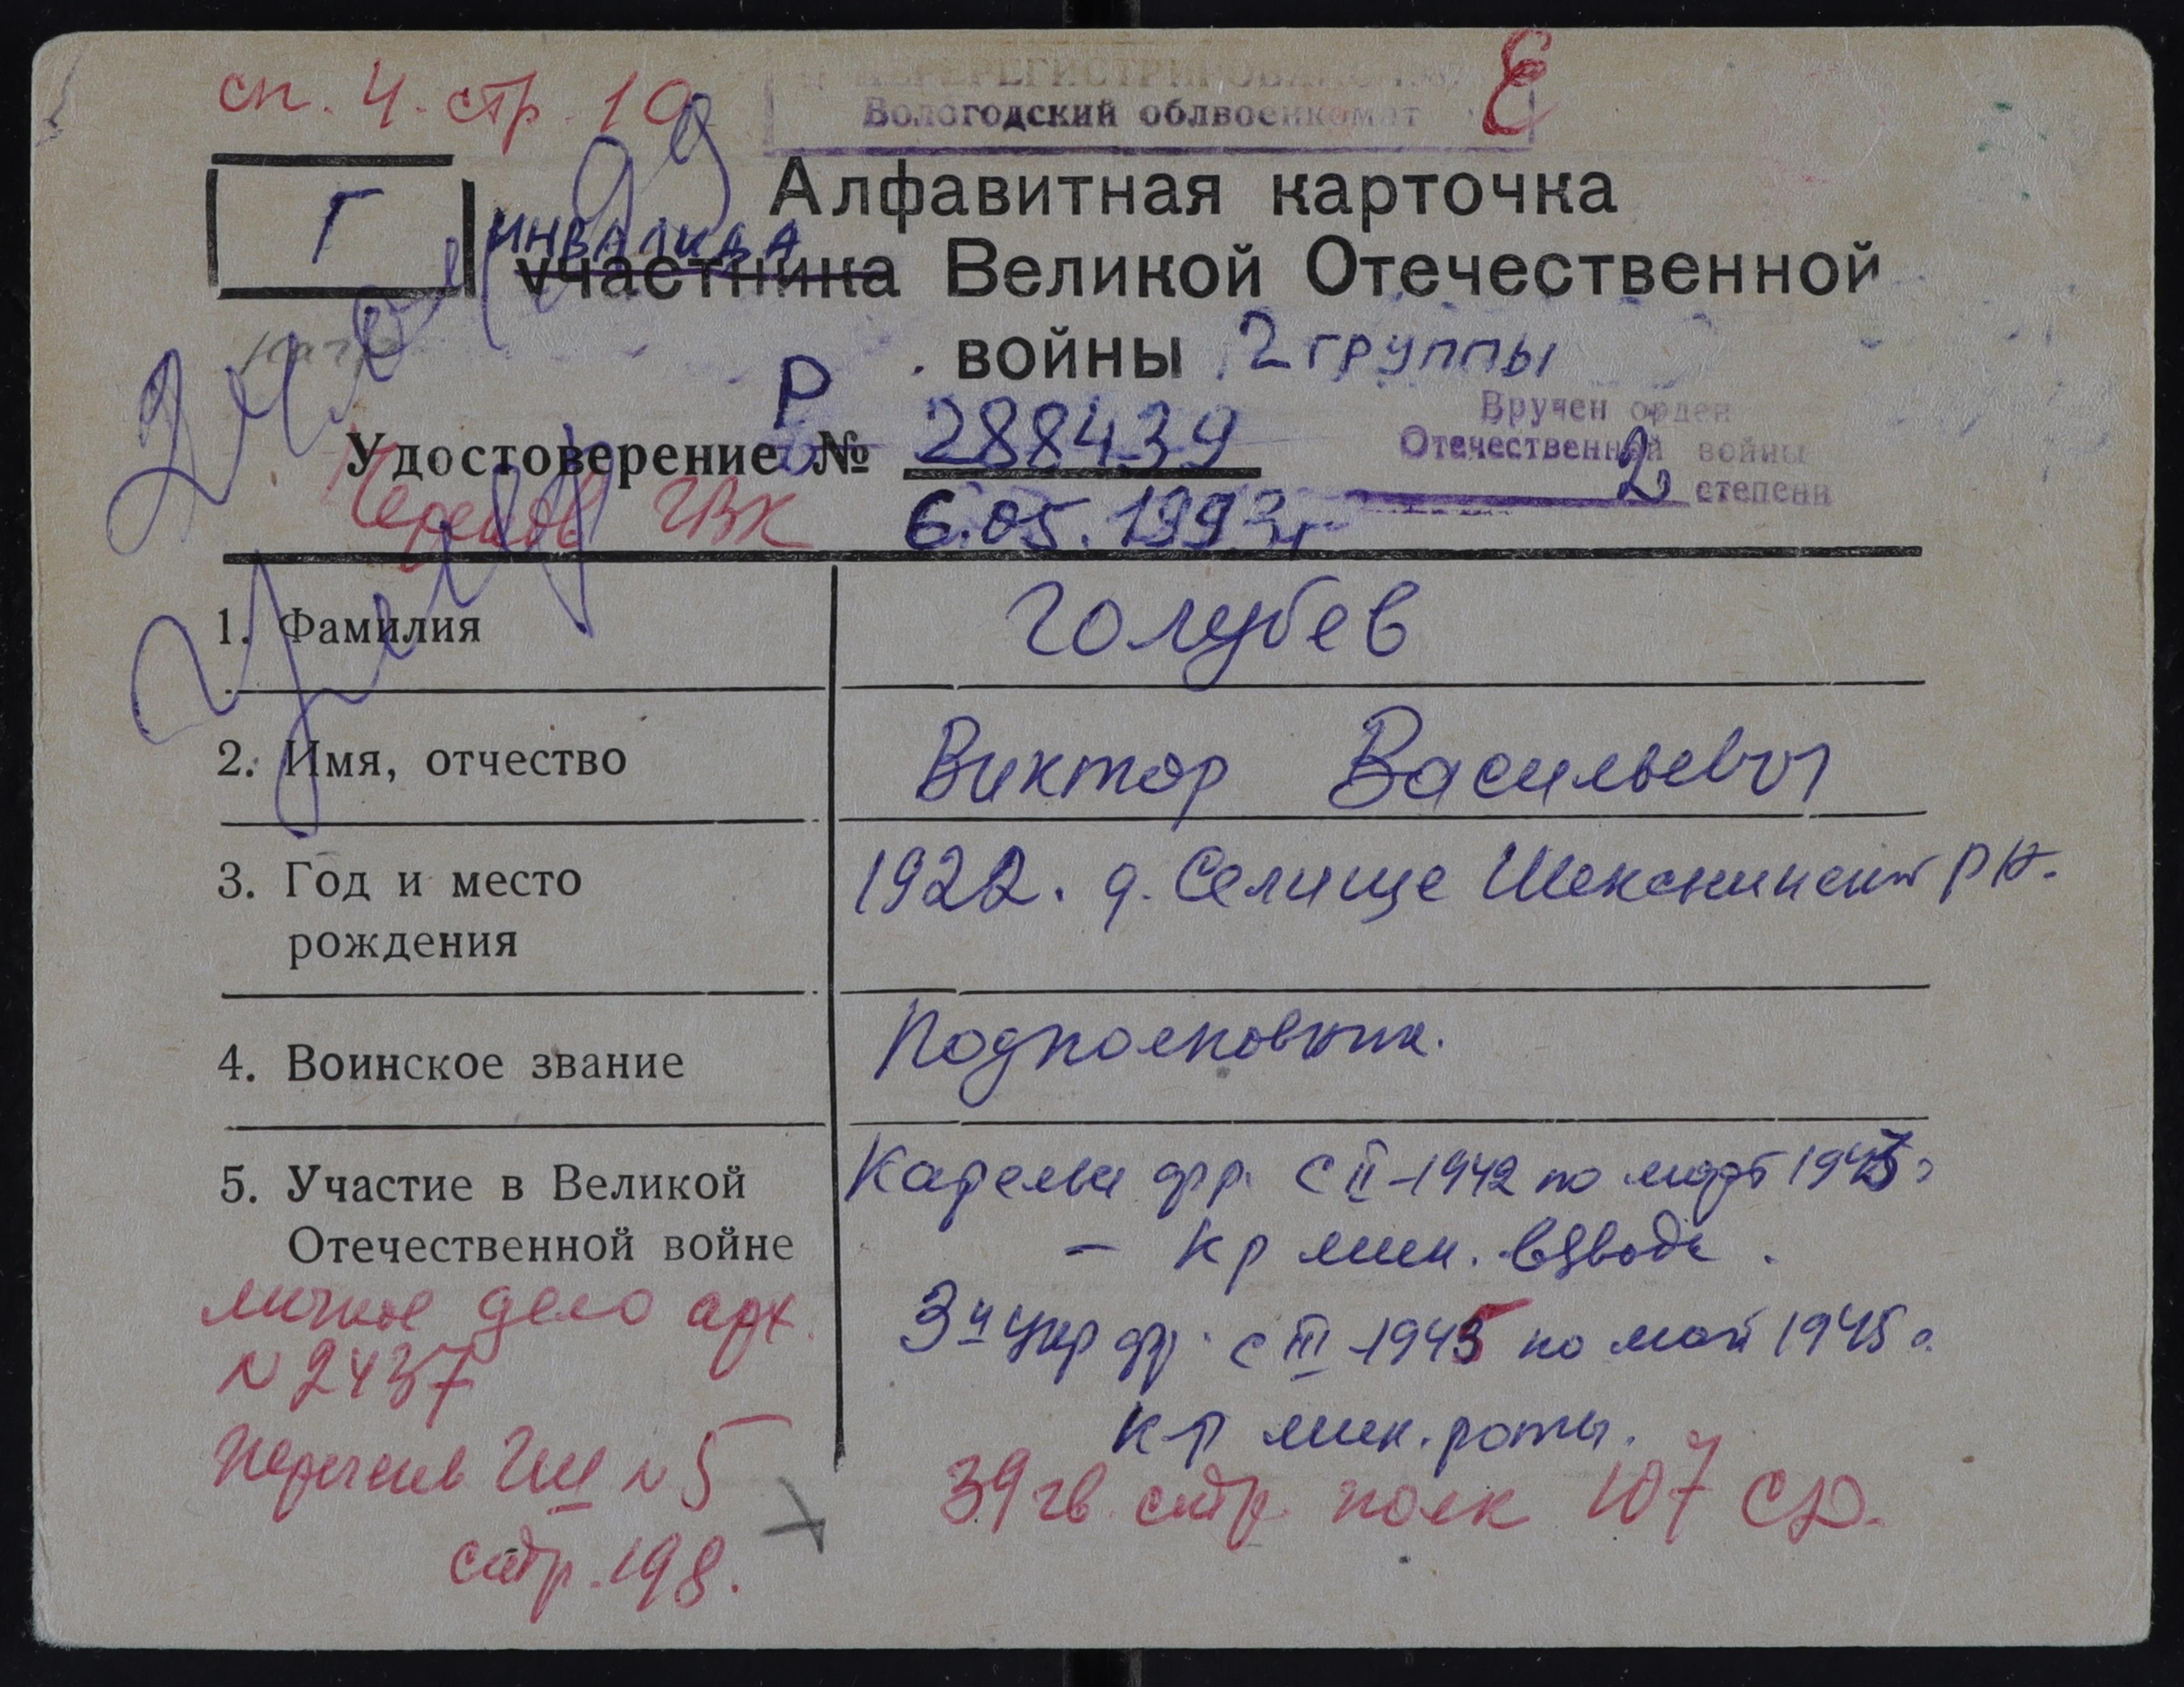 сп. 4. стр. 10
ПЕРЕРЕГИСТРИРОВАНО
Вологодский облвоенкомат
Е
Г
Алфавитная карточка
ИНВАЛИДА
участника Великой Отечественной
войны 2 группы
Р
Удостоверение № 288439
Вручен орден
Отечественной войны
2 степени
Черепов ГВК
6.05.1993г
1. Фамилия Голубев
2. Имя, отчество Виктор Васильевич
3. Год и место рождения 1922. д. Селище Шекснинский р-н.
4. Воинское звание Подполковник.
5. Участие в Великой Отечественной войне
Карельск фр. с II-1942 по март 1945г
– к-р мин. взвода.
3й Укр фр. с III-1945 по май 1945г.
к-р мин. роты.
39 гв. стр. полк 107 сд.
личное дело арх.
№ 2437
Перечень ГШ № 5
стр. 198.